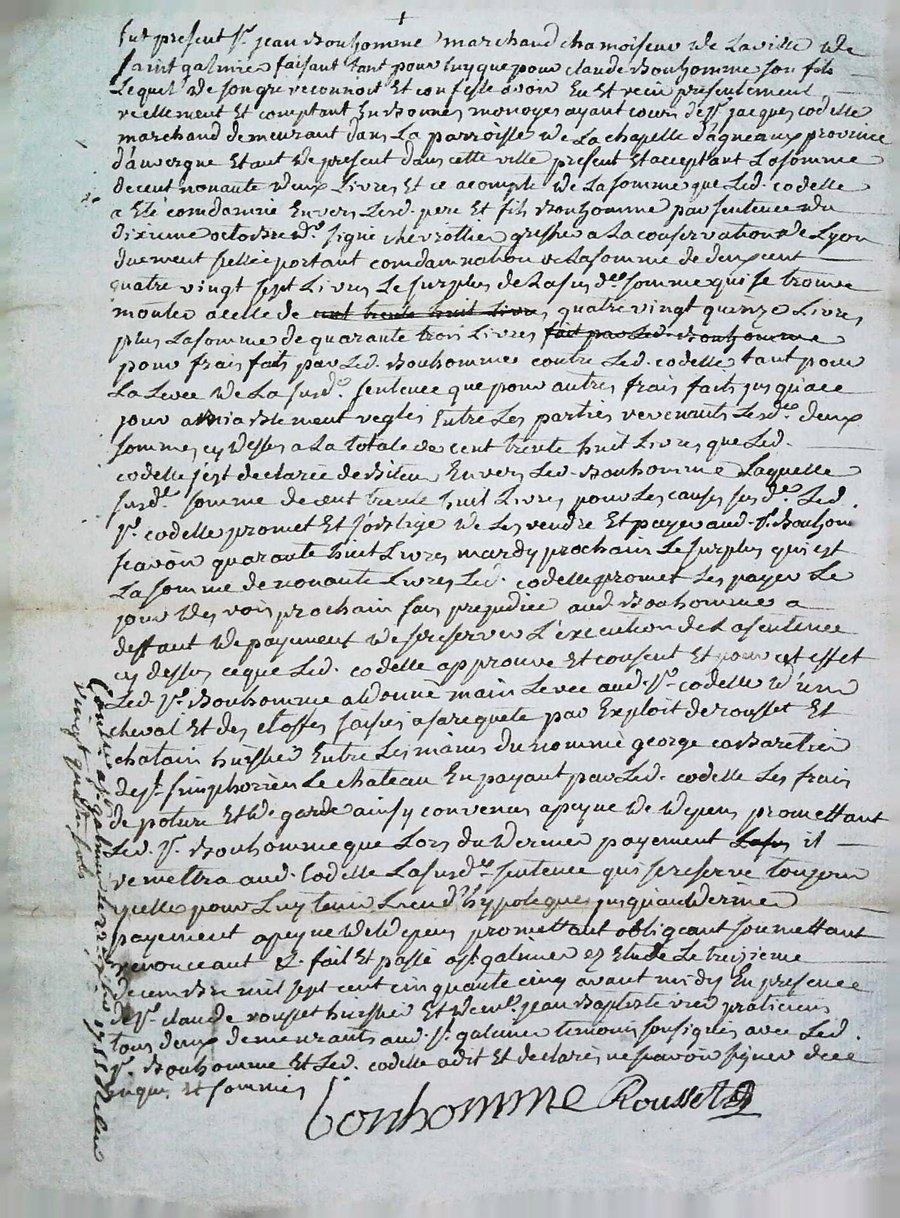 +
fut present Sr. jean Bonhomme marchand chamoiseur de La ville de
saint galmier faisant tant pour luy que pour claude Bonhomme son fils
Lequel de son gre reconnoit Et confesse avoir Eu et recu presentement
reellement Et comptant En Bonnes monoyes ayant cours de Sr. jacques codelle
marchand demeurant dans La parroisse de La chapelle d'agneaux province
d'auvergne Etant de present dans cette ville present Et acceptant La somme
de cent nonante deux Livres Et ce acompte de La somme que Led. codelle
a Eté comdamné Envers Lesd. pere Et fils Bonhomme par sentence du
dixieme octobre dr. signé chevrottier greffier a La conservation de Lyon
duement scellée portant comdamnation de La somme de deux cent
quatre vingt sept Livres Le surplus de La susdee. somme qui se trouve
monter a celle de cent trente huit Livres quatre vingt quinze Livres
plus La somme de quarante trois Livres fait par Led. Bonhomme
pour frais faits par Led. Bonhomme contre Led. codelle tant pour
La Levée de La susde. sentence que pour autres frais faits jusqu'a ce
jour amiablement regles Entre Les parties revenants Lesdes. deux
sommes cy desses a La totale de cent trente huit Livres que Led.
codelle s'est declarée debiteur Envers Led. Bonhomme Laquelle
susde. somme de cent trente huit Livres pour Les causes susdes. Led.
Sr. codelle promet Et s'oblige de Les rendre Et payer aud. Sr. Bonhome
scavoir quarante huit Livres mardy prochain Le surplus qui est
La somme de nonante Livres Led. codelle promet Les payer Le
jour des rois prochain sans prejudice aud Bonhomme a
deffaut de payement de se reserver L'execution de La sentence
cy dessus ce que Led. codelle approuve Et consent Et pour cet effet
Led. Sr. Bonhomme a donné main Levée aud. Sr. codelle d'un
cheval Et des Etoffes saisies a sa requete par Exploit de rousset Et
chatain huissier Entre Les mains du nommé george cabaretier
de st. simphorien Le chateau En payant par Led. codelle Les frais
de poture Et de garde ainsy convenu a peyne de depens promettant
Led. Sr. Bonhomme que Lors du dernier payement Lasus il
remettra aud. Codelle La susde. sentence qui se reserve toujours
ycelle pour Luy tenir Lieu d'hypoteques jusqu'au dernier
payement a peyne de depens promettant obligeant soumettant
renonceant &. fait Et passé a st galmier es Etude Le treizieme
decembre mil sept cent cinquante cinq avant midy En presence
de Sr. claude rousset huissier Et de mr. jean Baptiste praticiens
tous deux demeurants aud. St. galmier temoins soussignés avec Led.
Sr. Bonhomme Et Led. codelle a dit Et declarés ne scavoir signer de ce
enquis Et sommés
bonhomme Rousset
Controllé a st galmier 1755 Recu
vingt quatre sols